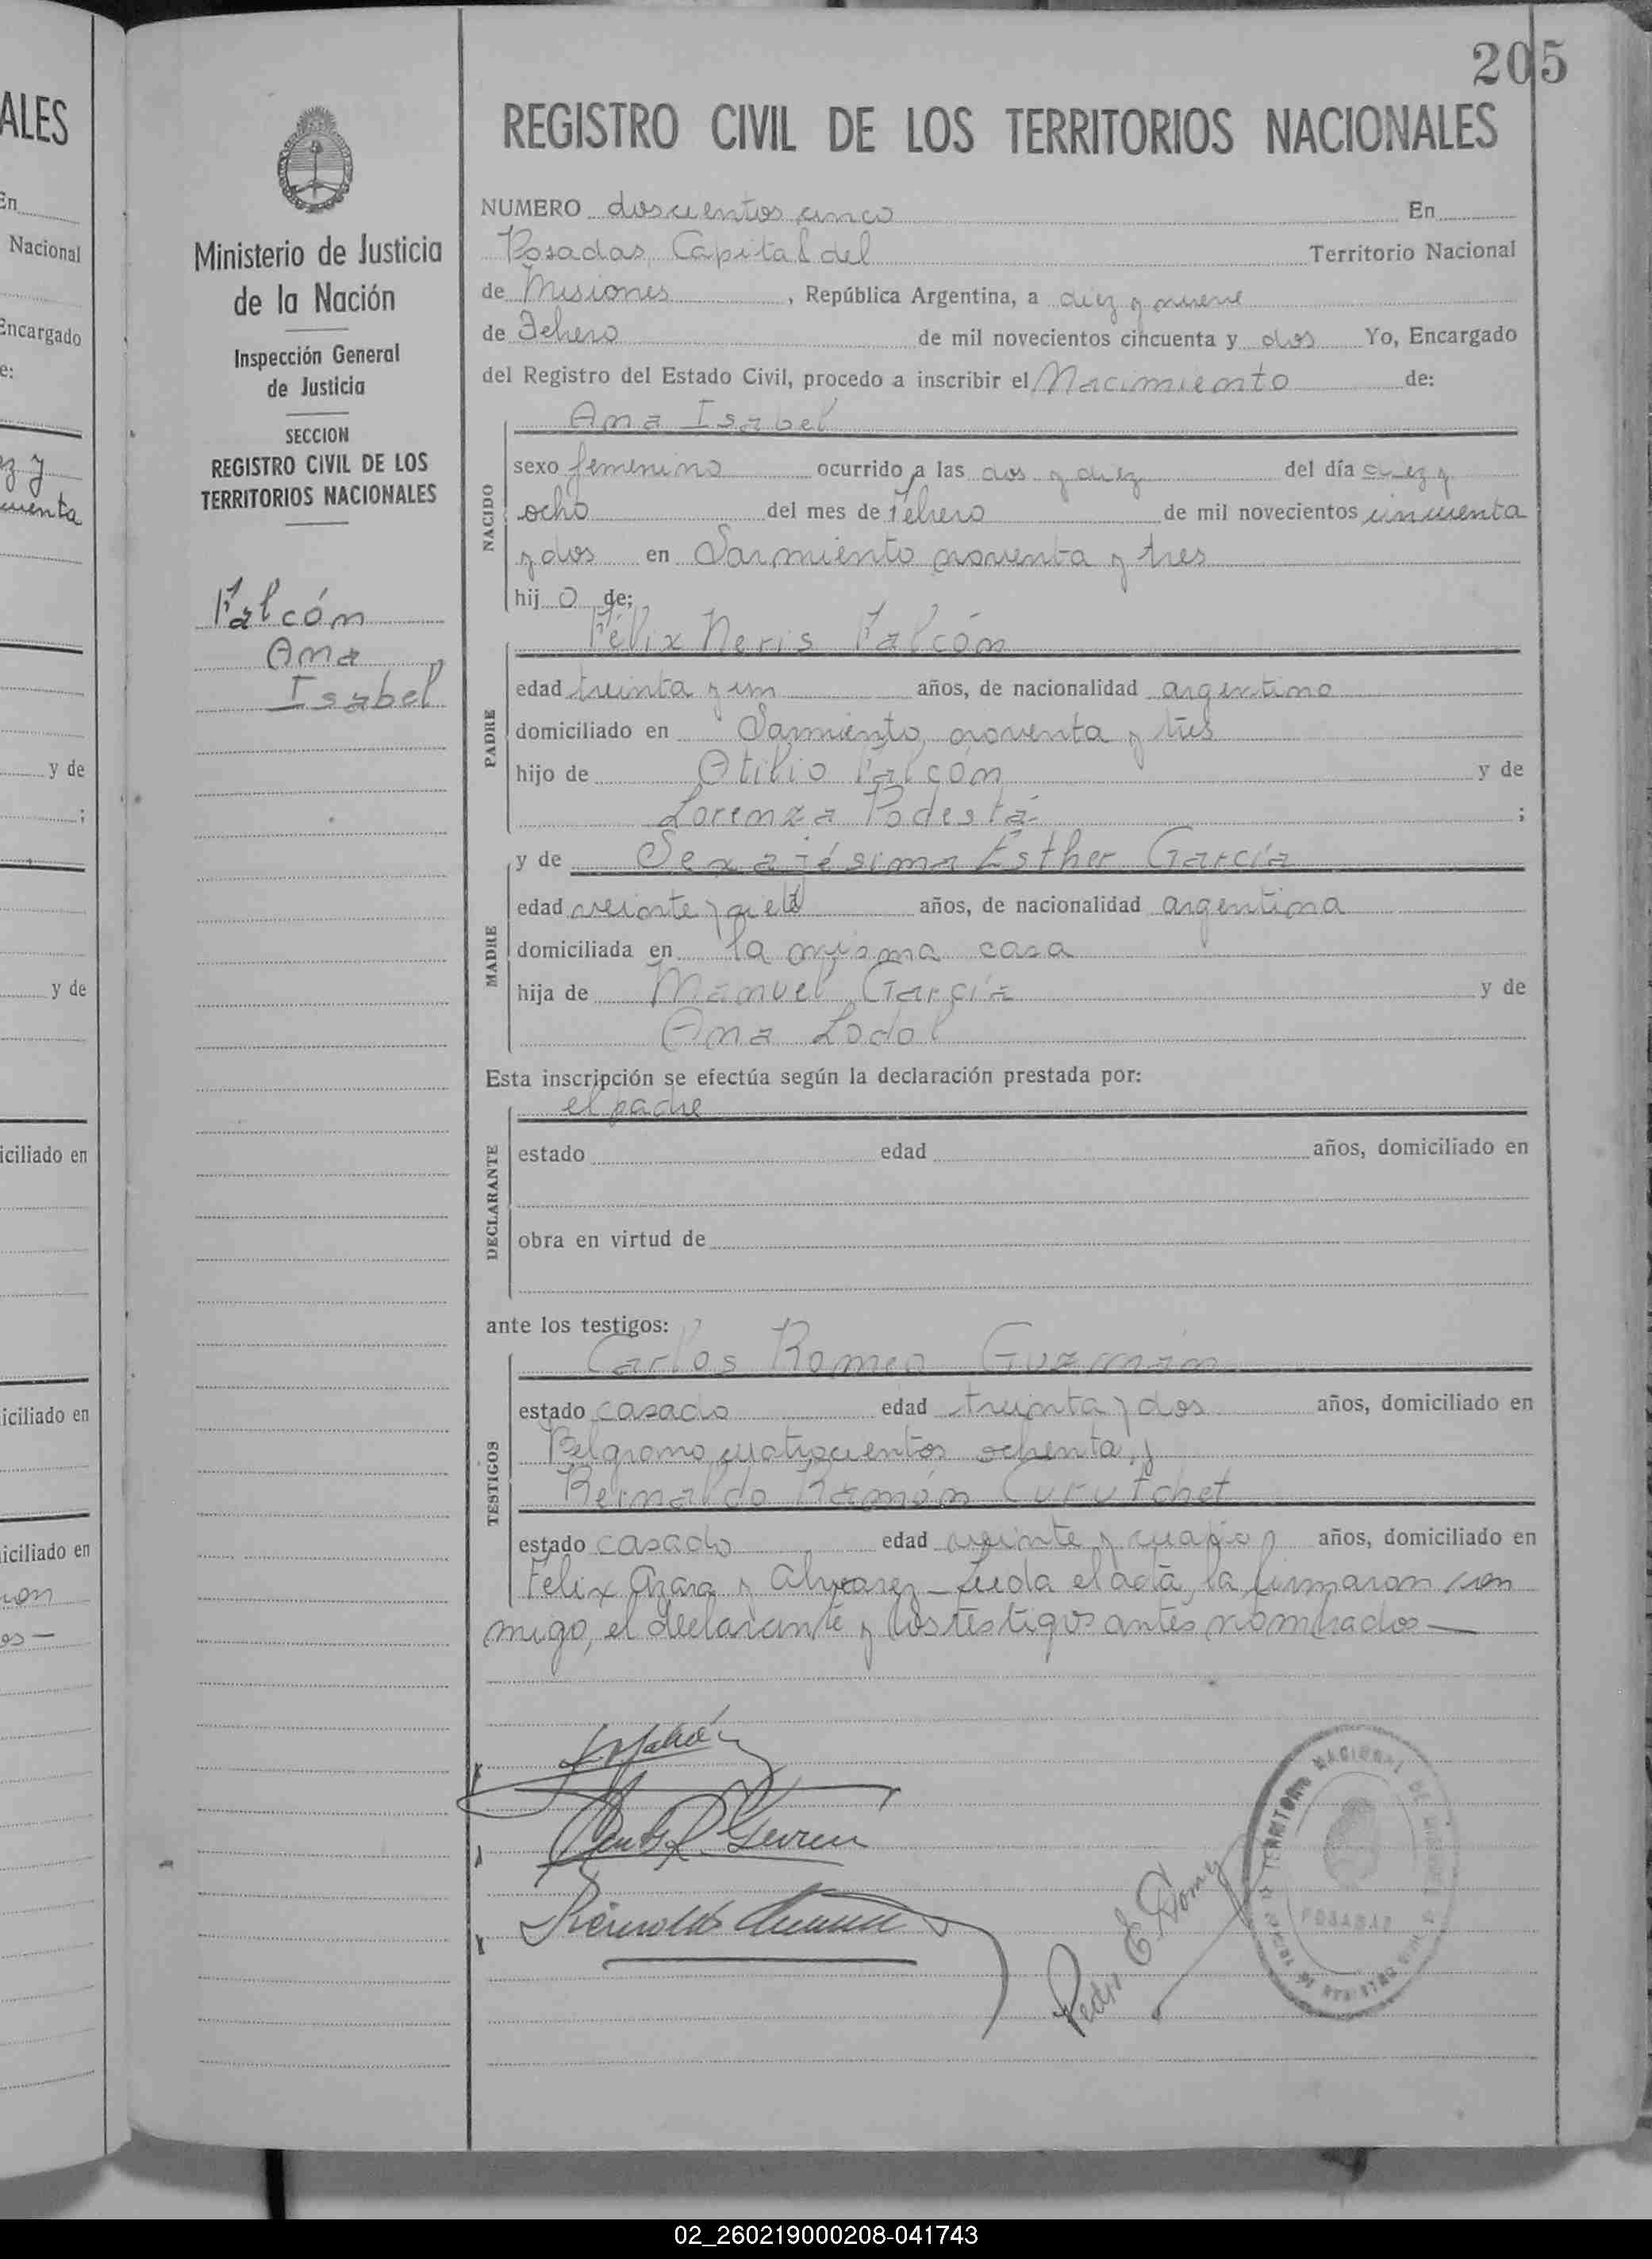 ALES
En
Nacional
Encargado
e:
ez y
cuenta
y de
;
y de
iciliado en
iciliado en
iciliado en
con
os —
Ministerio de Justicia
de la Nación
Inspección General
de Justicia
SECCION
REGISTRO CIVIL DE LOS
TERRITORIOS NACIONALES
Falcón
Ana
Isabel
205
REGISTRO CIVIL DE LOS TERRITORIOS NACIONALES
NUMERO doscientos cinco En
Posadas, Capital del Territorio Nacional
de Misiones, República Argentina, a diez y nueve
de Febrero de mil novecientos cincuenta y dos Yo, Encargado
del Registro del Estado Civil, procedo a inscribir el Nacimiento de:
Ana Isabel
NACIDO
sexo femenino ocurrido a las dos y diez del día diez y
ocho del mes de Febrero de mil novecientos cincuenta
y dos en Sarmiento noventa y tres
hij o de:
Félix Neris Falcón
PADRE
edad treinta y un años, de nacionalidad argentino
domiciliado en Sarmiento noventa y tres
hijo de Otilio Falcón y de
Lorenza Podestá ;
y de Sexajésima Esther García
MADRE
edad veinte y años, de nacionalidad argentina
domiciliada en la misma casa
hija de Manuel García y de
Ana Lodol
Esta inscripción se efectúa según la declaración prestada por:
el padre
DECLARANTE
estado edad años, domiciliado en
obra en virtud de
ante los testigos:
Carlos Romeo Guzmán
TESTIGOS
estado casado edad treinta y dos años, domiciliado en
Belgrano cuatrocientos ochenta, y
Reinaldo Ramón Curutchet
estado casado edad veinte y cuatro años, domiciliado en
Felix Azara y Alvarez — Leida el acta, la firmaron con
migo, el declarante y los testigos antes nombrados —
Pedro E. Gomez
TERRITORIO NACIONAL DE MISIONES
POSADAS
02_260219000208-041743